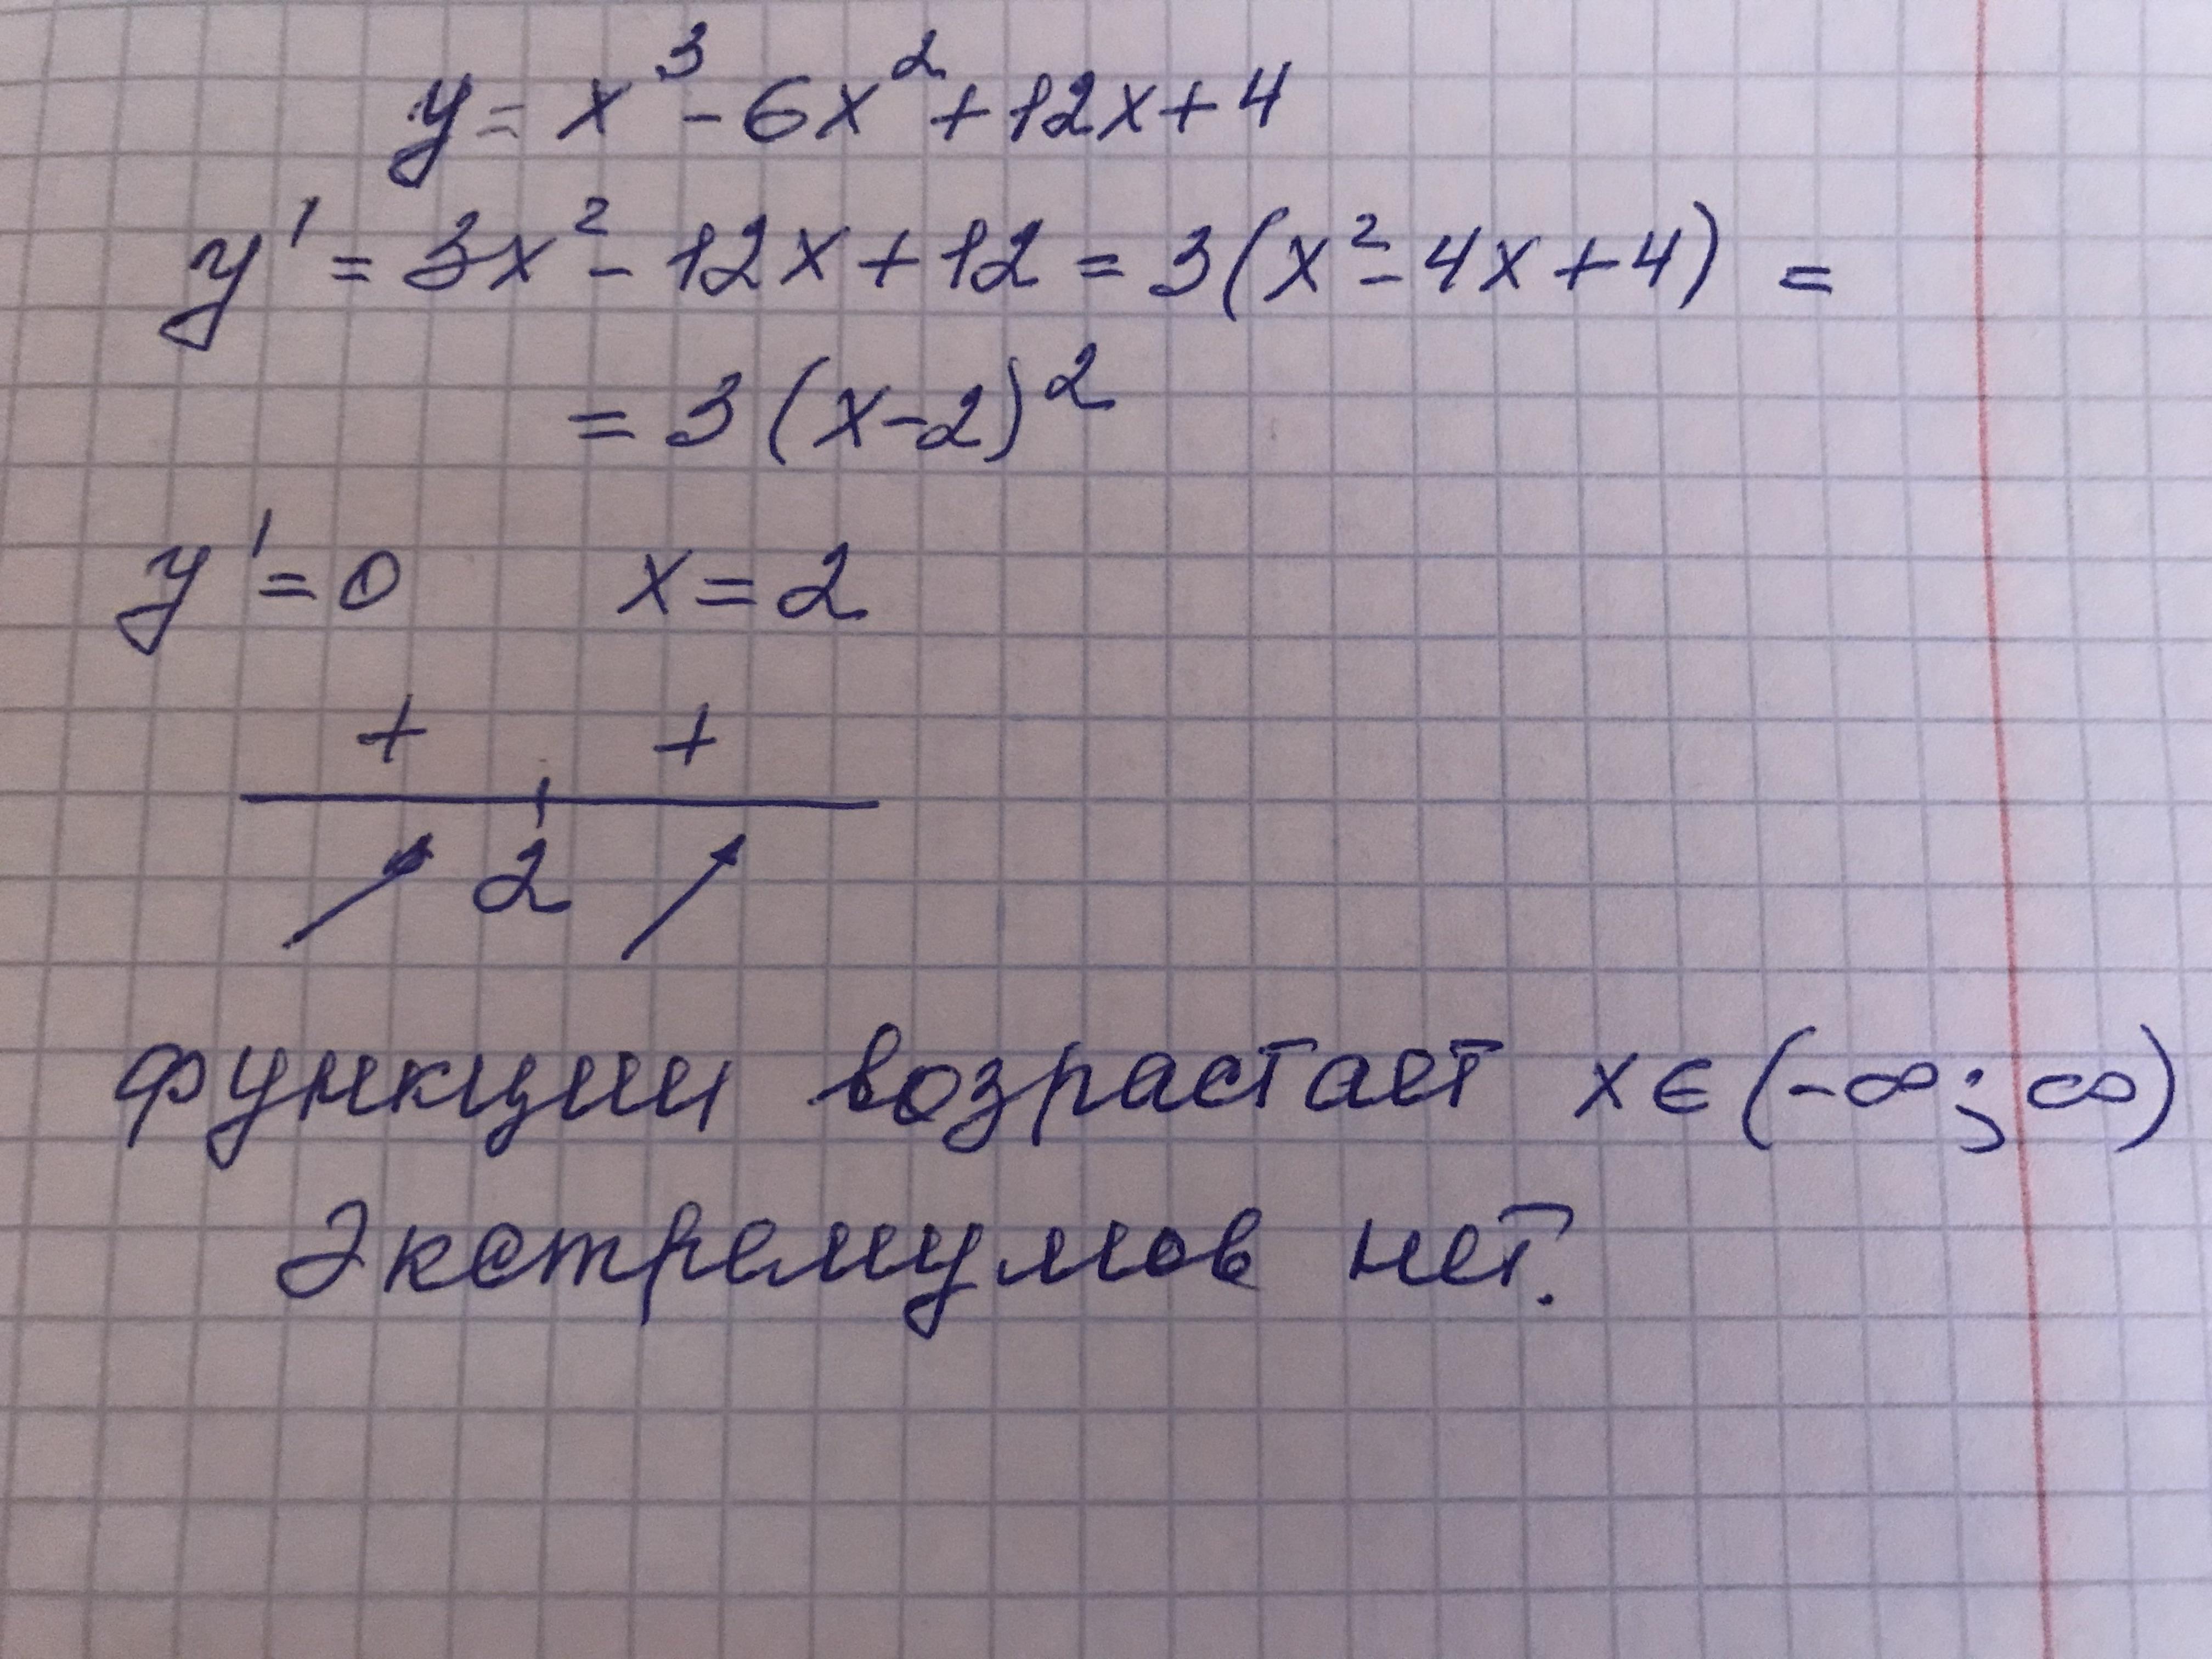 y = x³ - 6x² + 12x + 4
y' = 3x² - 12x + 12 = 3(x² - 4x + 4) =
= 3(x-2)²
y' = 0 x = 2
+ +
2
функции возрастает x ∈ (-∞; ∞)
Экстремумов нет.